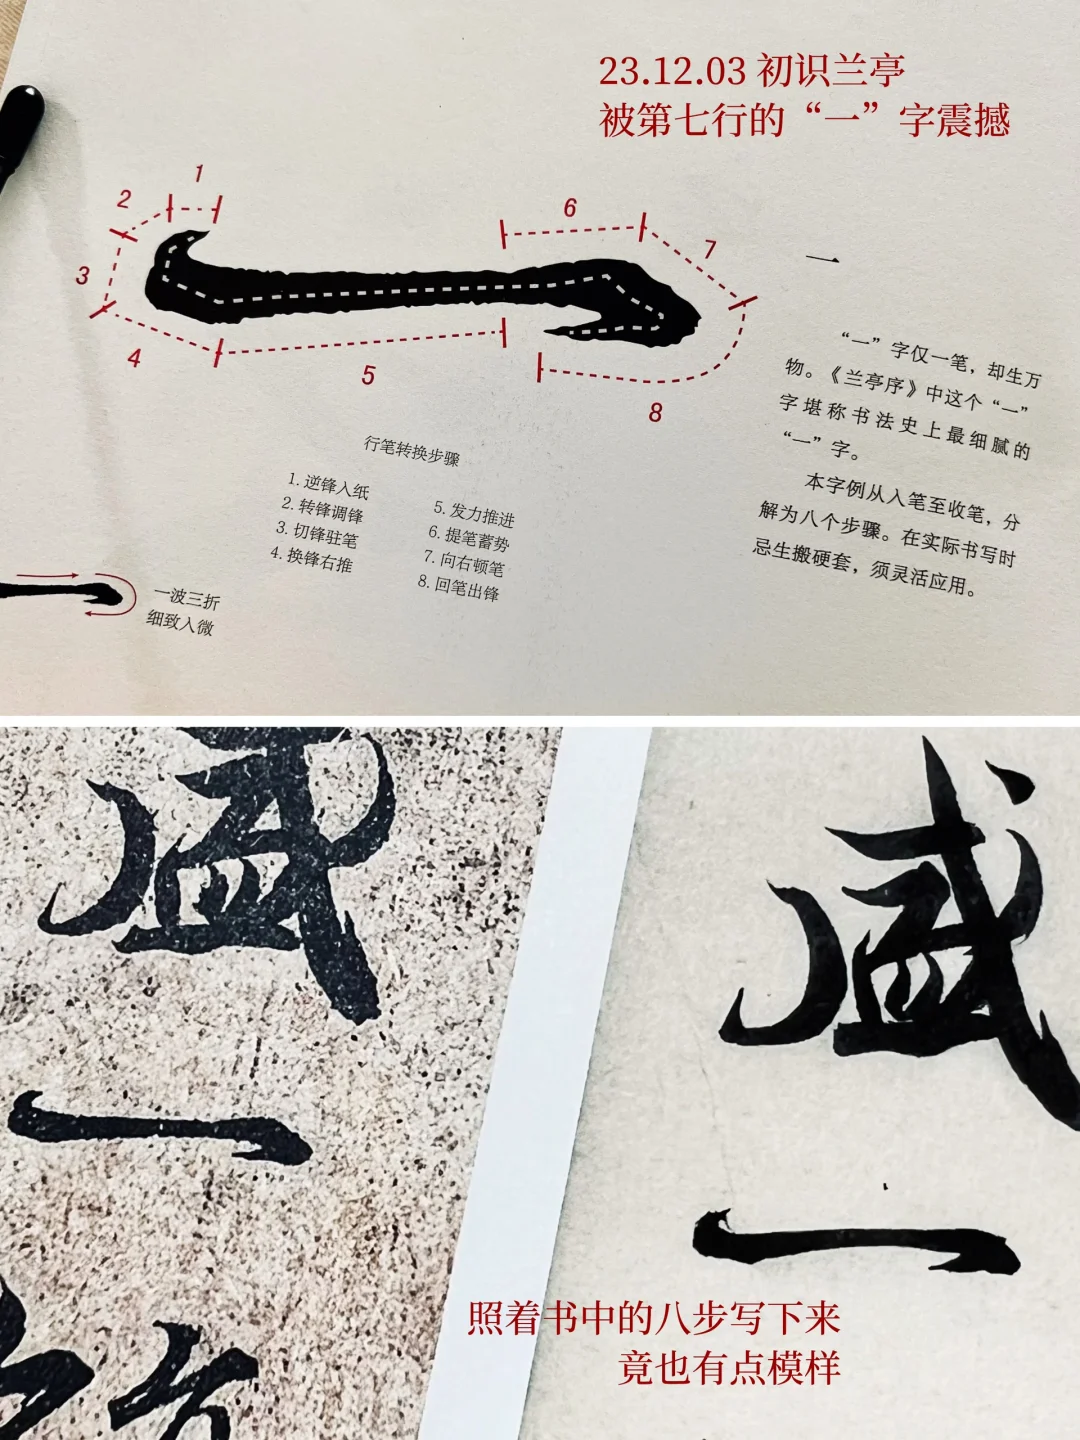 23.12.03 初识兰亭
被第七行的“一”字震撼
1
2
3
4
5
6
7
8
一
“一”字仅一笔，却生万
物。《兰亭序》中这个“一”
字堪称书法史上最细腻的
“一”字。
本字例从入笔至收笔，分
解为八个步骤。在实际书写时
忌生搬硬套，须灵活应用。
行笔转换步骤
1. 逆锋入纸
2. 转锋调锋
3. 切锋驻笔
4. 换锋右推
5. 发力推进
6. 提笔蓄势
7. 向右顿笔
8. 回笔出锋
一波三折
细致入微
盛
一
盛
一
照着书中的八步写下来
竟也有点模样